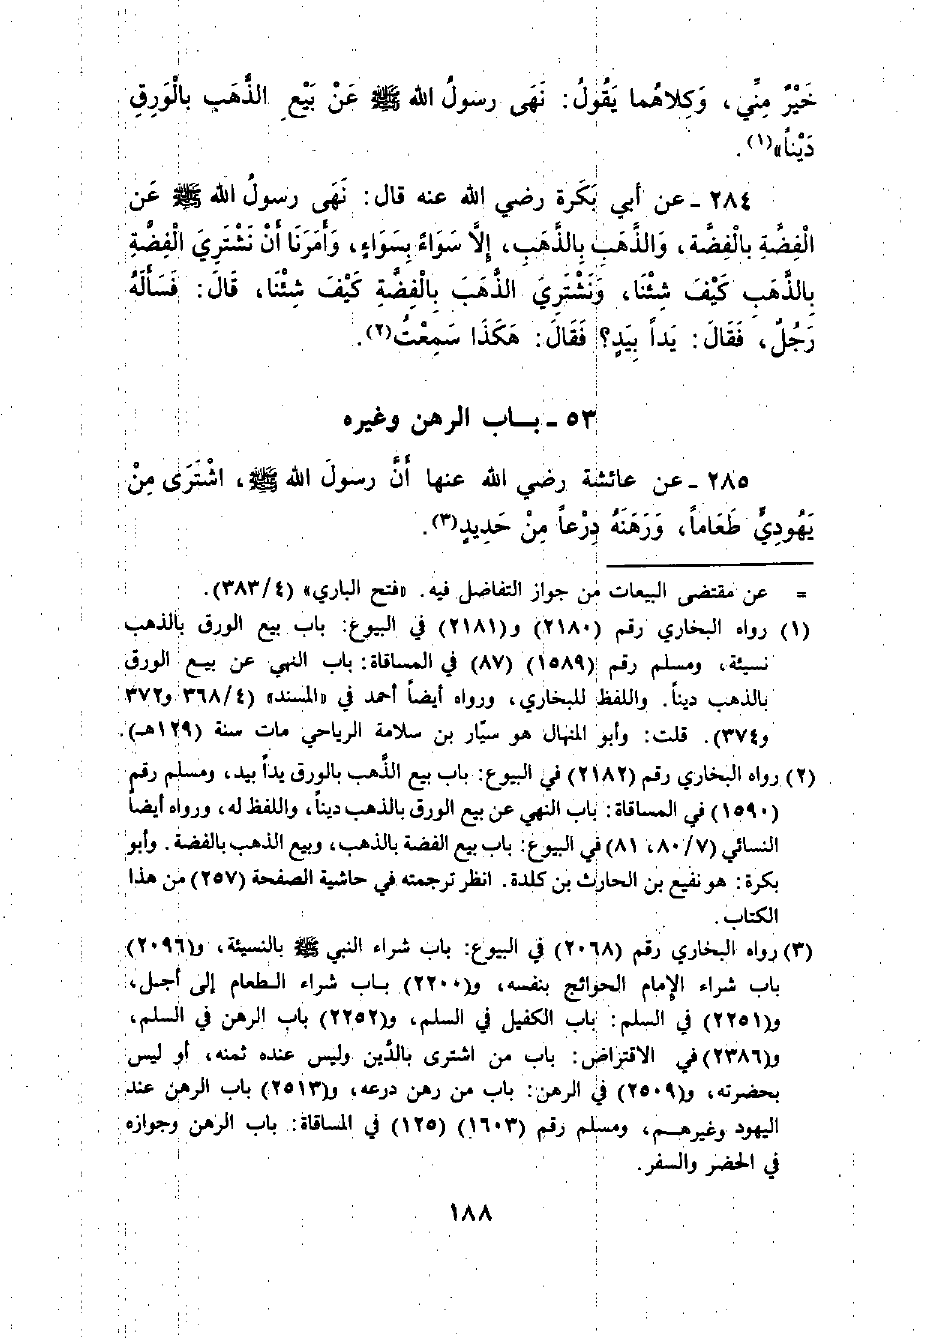 خَيْرٌ مِنِّي، وَكِلاهُما يَقُولُ: نَهَى رسولُ الله ﷺ عَنْ بَيْعِ الذَّهَبِ بالْوَرِقِ
دَيْناً»(١).
٢٨٤ ـ عن أبي بَكَرة رضي الله عنه قال: نَهَى رسولُ الله ﷺ عَن
الْفِضَّةِ بالْفِضَّة، وَالذَّهَبِ بِالذَّهَبِ، إِلَّا سَوَاءً بِسَوَاءٍ، وَأَمَرَنَا أَنْ نَشْتَرِيَ الْفِضَّةَ
بِالذَّهَبِ كَيْفَ شِئْنَا، وَنَشْتَرِيَ الذَّهَبَ بِالْفِضَّةِ كَيْفَ شِئْنَا، قَالَ: فَسَأَلَهُ
رَجُلٌ، فَقَالَ: يَداً بِيَدٍ؟ فَقَالَ: هَكَذَا سَمِعْتُ(٢).
٥٣ ـ بــاب الرهن وغيره
٢٨٥ ـ عن عائشة رضي الله عنها أَنَّ رسولَ الله ﷺ، اشْتَرَى مِنْ
يَهُودِيٍّ طَعَاماً، وَرَهَنَهُ دِرْعاً مِنْ حَدِيدٍ(٣).
= عن مقتضى البيعات من جواز التفاضل فيه. «فتح الباري» (٤/ ٣٨٣).
(١) رواه البخاري رقم (٢١٨٠) و(٢١٨١) في البيوع: باب بيع الورق بالذهب
نسيئة، ومسلم رقم (١٥٨٩) (٨٧) في المساقاة: باب النهي عن بيع الورق
بالذهب ديناً. واللفظ للبخاري، ورواه أيضاً أحمد في «المسند» (٤/ ٣٦٨ و٣٧٢
و٣٧٤). قلت: وأبو المنهال هو سيّار بن سلامة الرياحي مات سنة (١٢٩هـ).
(٢) رواه البخاري رقم (٢١٨٢) في البيوع: باب بيع الذَّهب بالورق يداً بيد، ومسلم رقم
(١٥٩٠) في المساقاة: باب النهي عن بيع الورق بالذهب ديناً، واللفظ له، ورواه أيضاً
النسائي (٧/ ٨٠، ٨١) في البيوع: باب بيع الفضة بالذهب، وبيع الذهب بالفضة. وأبو
بكرة: هو نفيع بن الحارث بن كلدة. انظر ترجمته في حاشية الصفحة (٢٥٧) من هذا
الكتاب.
(٣) رواه البخاري رقم (٢٠٦٨) في البيوع: باب شراء النبي ﷺ بالنسيئة، و(٢٠٩٦)
باب شراء الإمام الحوائج بنفسه، و(٢٢٠٠) بـاب شراء الـطعام إلى أجـل،
و(٢٢٥١) في السلم: باب الكفيل في السلم، و(٢٢٥٢) باب الرهن في السلم،
و(٢٣٨٦) في الاقتراض: باب من اشترى بالدَّين وليس عنده ثمنه، أو ليس
بحضرته، و(٢٥٠٩) في الرهن: باب من رهن درعه، و(٢٥١٣) باب الرهن عند
اليهود وغيرهـم، ومسلم رقم (١٦٠٣) (١٢٥) في المساقاة: باب الرهن وجوازه
في الحضر والسفر.
١٨٨